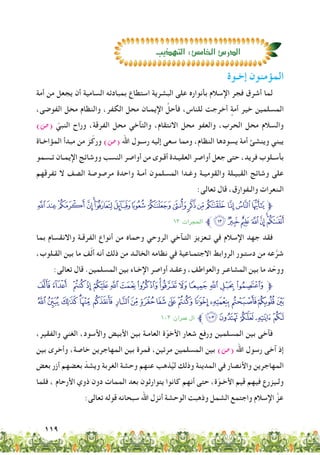 الدرس الخامس: التهذيب
المؤمنون إخوة
لما أشرق فجر الإسلام بأنواره على البشرية استطاع بمبادئه السامية أن يجعل من أمة
المسلمين خير أمةٍ أخرجت للناس، فأحلّ الإيمـان محل الكفر، والنظام محل الفوضى،
والسلام محل الحرب، والعفو محل الانتقام، والتآخي محل الفرقة، وراح النبيّ (ص)
يبني وينشئ أمة يسودها النظام، ومما سعى إليه رسول الله (ص) وركز من مبدأ المؤاخـاة
بأسلوب فريد، حتى جعل أواصر العقيـدة أقـوى من أواصر النسب ووشائج الإيمـان تسمو
على وشائج القبيـلة والقوميـة وغـدا المسلمون أمـة واحدة مرصوصة الصف لا تفرقهم
النعرات والفـوارق، قال تعالى:
﴿يَا أَيُّهَا النَّاسُ إِنَّا خَلَقْنَاكُمْ مِنْ ذَكَرٍ وَأُنْثَى وَجَعَلْنَاكُمْ شُعُوبًا وَقَبَائِلَ لِتَعَارَفُوا إِنَّ أَكْرَمَكُمْ عِنْدَ اللَّهِ
أَتْقَاكُمْ إِنَّ اللَّهَ عَلِيمٌ خَبِيرٌ ﴿١٣﴾﴾ الحجرات: ١٣
فقد جهد الإسلام في تعزيز التـآخي الروحي وحماه من أنواع الفرقـة والانقسام بما
شرّعه من دستور الروابط الاجتماعية في نظامه الخالـد من ذلك أنه ألّف ما بين القلـوب،
ووحّد ما بين المشاعـر والعواطف، وعقـد أواصر الإخـاء بين المسلمين. قال تعالى:
﴿وَاعْتَصِمُوا بِحَبْلِ اللَّهِ جَمِيعًا وَلَا تَفَرَّقُوا وَاذْكُرُوا نِعْمَتَ اللَّهِ عَلَيْكُمْ إِذْ كُنْتُمْ أَعْدَاءً فَأَلَّفَ
بَيْنَ قُلُوبِكُمْ فَأَصْبَحْتُمْ بِنِعْمَتِهِ إِخْوَانًا وَكُنْتُمْ عَلَى شَفَا حُفْرَةٍ مِنَ النَّارِ فَأَنْقَذَكُمْ مِنْهَا كَذَلِكَ يُبَيِّنُ اللَّهُ
لَكُمْ آيَاتِهِ لَعَلَّكُمْ تَهْتَدُونَ ﴿١٠٣﴾﴾ آل عمران: ١٠٣
فآخى بين المسلمين ورفع شعار الأخوّة العامـة بين الأبيض والأسود، الغني والفقير،
إذ آخى رسول الله (ص) بين المسلمين مرتين، فمرة بين المهاجرين خاصة، وأخرى بين
المهاجرين والأنصار في المدينة وذلك ليُذهب عنهم وحشة الغربة ويشدّ بعضهم أزر بعض
وليزرع فيهم قيم الأخـوّة، حتى أنهم كانوا يتوارثون بعد الممات دون ذوي الأرحام ، فلما
عزّ الإسلام واجتمع الشمل وذهبت الوحشة أنزل الله سبحانه قوله تعالى:
١١٩